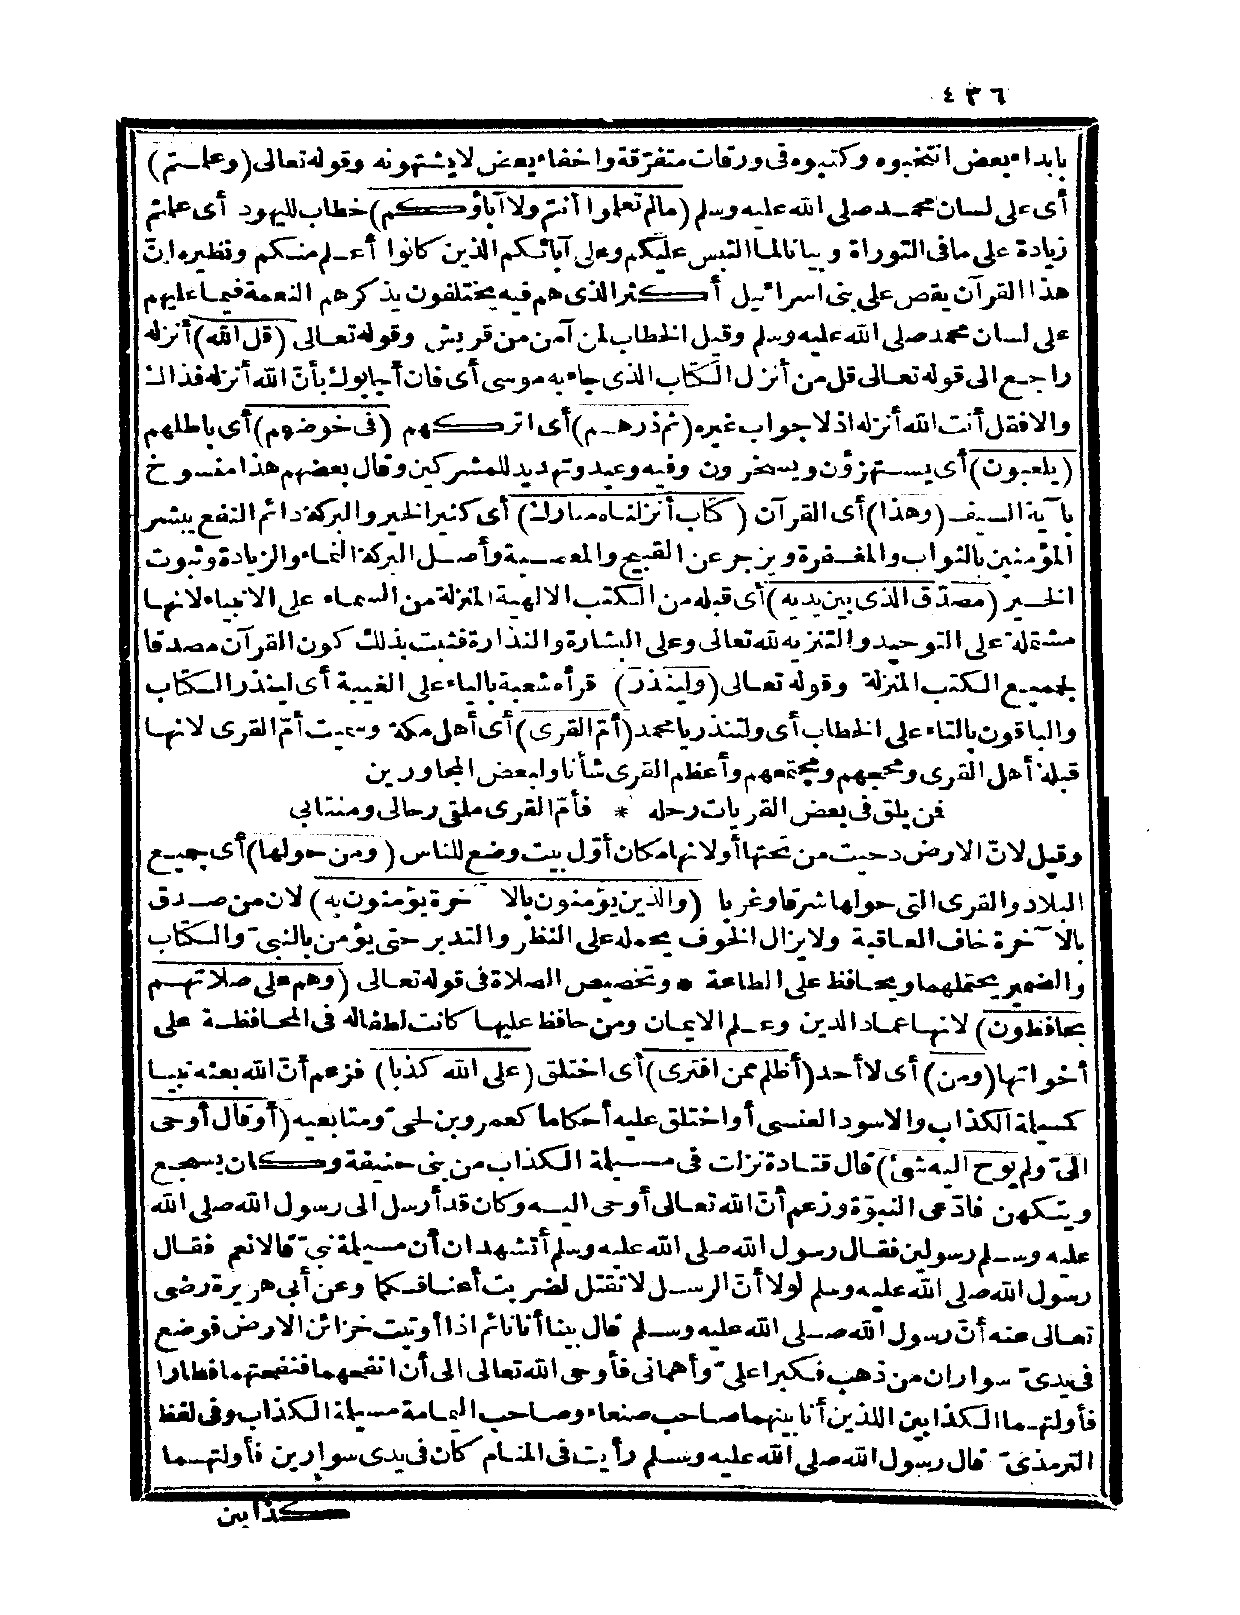 ٤٣٦
بابداء بعض انتخبوه وكتبوه فى ورقات متفرّقة واخفاء بعض لا يشتهونه وقوله تعالى (وعلمتم)
أى على لسان محمد صلى الله عليه وسلم (مالم تعلموا أنتم ولا آباؤكم) خطاب لليهود أى علمتم
زيادة على ما فى التوراة وبيانا لما التبس عليكم وعلى آبائكم الذين كانوا أعلم منكم ونظيره انّ
هذا القرآن يقص على بنى اسرائيل أكثر الذى هم فيه يختلفون يذكرهم النعمة فيما علمهم
على لسان محمد صلى الله عليه وسلم وقيل الخطاب لمن آمن من قريش وقوله تعالى (قل الله) أنزله
راجع الى قوله تعالى قل من أنزل الكتاب الذى جاء به موسى أى فان أجابوك بأنّ الله أنزله فذاك
والا فقل أنت الله أنزله اذ لا جواب غيره (ثم ذرهم) أى اتركهم (فى خوضهم) أى باطلهم
(يلعبون) أى يستهزؤن ويسخرون وفيه وعيد وتهديد للمشركين وقال بعضهم هذا منسوخ
بآية السيف (وهذا) أى القرآن (كتاب أنزلناه مبارك) أى كثير الخير والبركة دائم النفع يبشر
المؤمنين بالثواب والمغفرة ويزجر عن القبيح والمعصية وأصل البركة النماء والزيادة وثبوت
الخير (مصدّق الذى بين يديه) أى قبله من الكتب الالهية المنزلة من السماء على الانبياء لانها
مشتملة على التوحيد والتنزيه لله تعالى وعلى البشارة والنذارة فثبت بذلك كون القرآن مصدقا
لجميع الكتب المنزلة وقوله تعالى (ولينذر) قرأه شعبة بالياء على الغيبة أى لينذر الكتاب
والباقون بالتاء على الخطاب أى ولتنذر يا محمد (أمّ القرى) أى أهل مكة وسميت أمّ القرى لانها
قبلة أهل القرى ومحجهم ومجتمعهم وأعظم القرى شأنا ولبعض المجاورين
فمن يلق فى بعض القريات رحله * فأمّ القرى ملقى رحالى ومنتابى
وقيل لانّ الارض دحيت من تحتها أو لانها مكان أوّل بيت وضع للناس (ومن حولها) أى جميع
البلاد والقرى التى حولها شرقا وغربا (والذين يؤمنون بالآخرة يؤمنون به) لان من صدق
بالآخرة خاف العاقبة ولا يزال الخوف يحمله على النظر والتدبر حتى يؤمن بالنبىّ والكتاب
والضمير يحتملهما ويحافظ على الطاعة * وتخصيص الصلاة فى قوله تعالى (وهم على صلاتهم
يحافظون) لانها عماد الدين وعلم الايمان ومن حافظ عليها كانت لطفاله فى المحافظة على
أخواتها (ومن) أى لا أحد (أظلم ممن افترى) أى اختلق (على الله كذبا) فزعم أنّ الله بعثه نبيا
كمسيلة الكذاب والاسود العنسى أو اختلق عليه أحكاما كعمرو بن لحىّ ومتابعيه (أو قال أوحى
الىّ ولم يوح اليه شئ) قال قتادة نزلت فى مسيلة الكذاب من بنى حنيفة وكان يسجع
ويتكهن فادّعى النبوّة وزعم أنّ الله تعالى أوحى اليه وكان قد أرسل الى رسول الله صلى الله
عليه وسلم رسولين فقال رسول الله صلى الله عليه وسلم أتشهدان أن مسيلة نبىّ قالا نعم فقال
رسول الله صلى الله عليه وسلم لولا أنّ الرسل لا تقتل لضربت أعناقكما وعن أبى هريرة رضى
تعالى عنه أنّ رسول الله صلى الله عليه وسلم قال بينا أنا نائم اذ أوتيت خزائن الارض فوضع
فى يدىّ سواران من ذهب فكبرا علىّ وأهمانى فأوحى الله تعالى الى أن انفخهما فنفختهما فطارا
فأولتهما الكذابين اللذين أنا بينهما صاحب صنعاء وصاحب اليمامة مسيلة الكذاب وفى لفظ
الترمذىّ قال رسول الله صلى الله عليه وسلم رأيت فى المنام كان فى يدى سوارين فأولتهما
كذابين